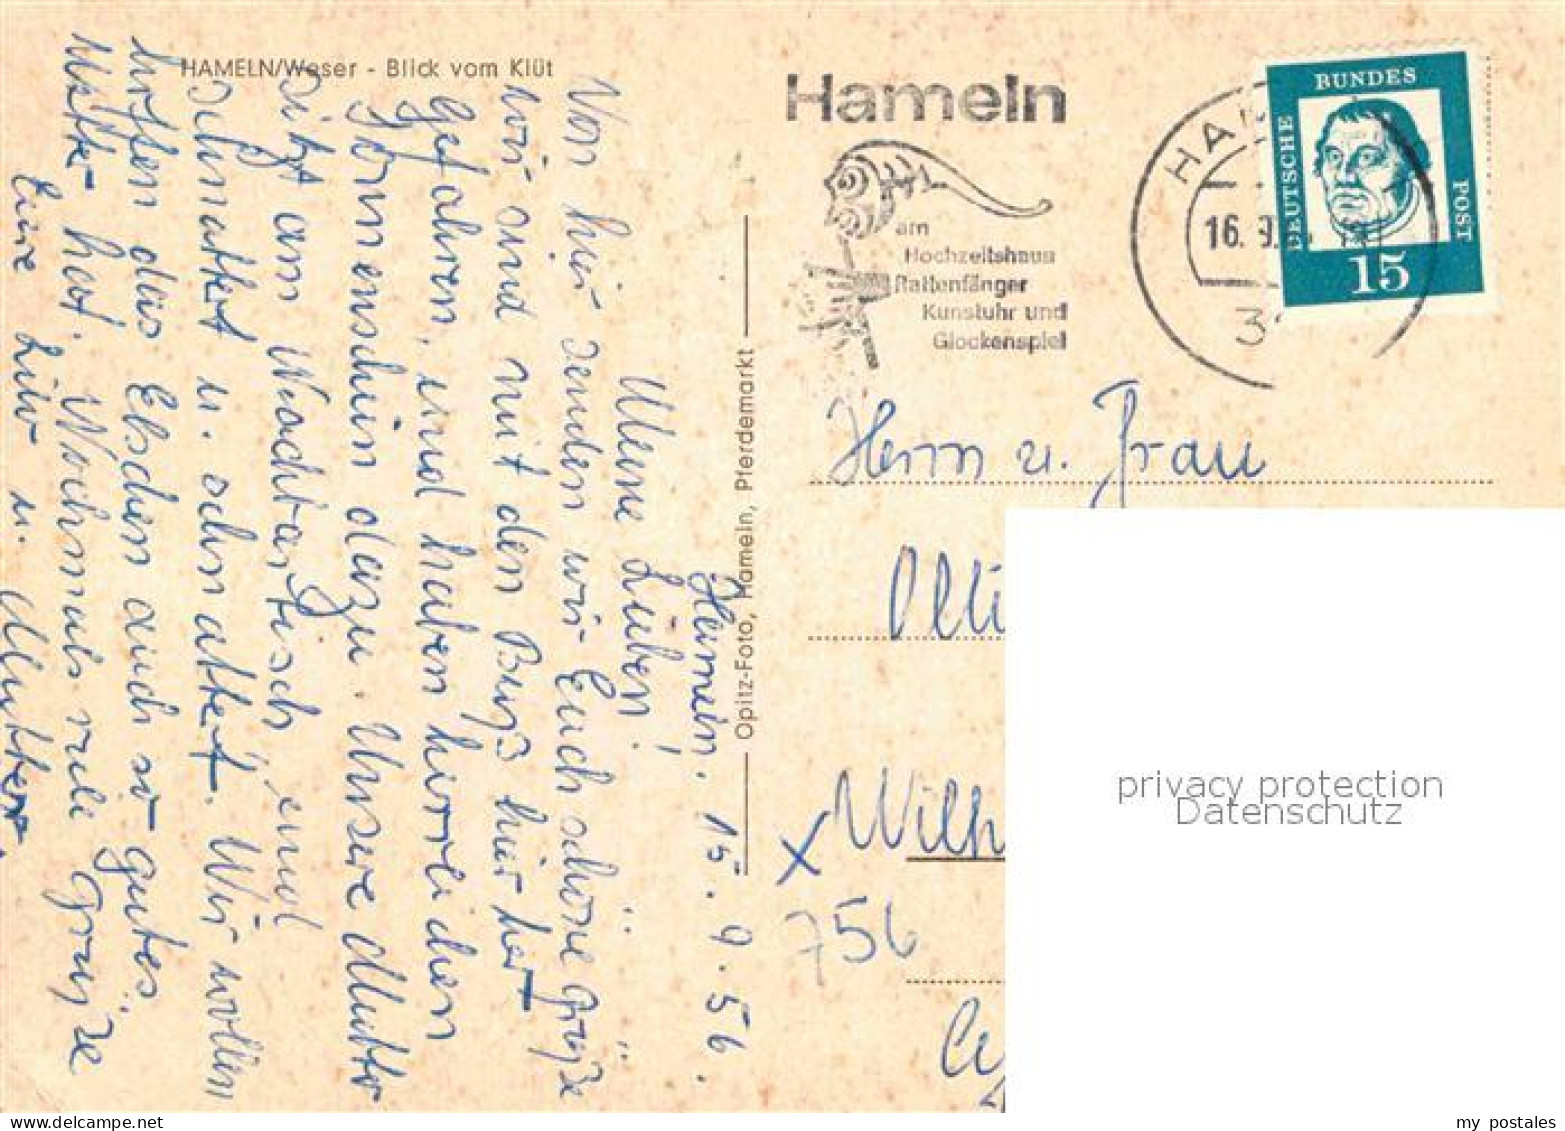 HAMELN/Weser - Blick vom Klüt
Hameln. 15.9.56.
Meine Lieben!
Von hier senden wir Euch schöne Grüße
wir sind mit den Buß hier her
gefahren, und haben hirreichen
Sonnenschein dazu. Unsere Mutter
Sitzt am Nachbartisch, und
schnattert u. schnattert. Wir wollen
hoffen das Elschen auch so gutes
Wetter hat. Nochmals viele Grüße
Eure Luiv u. Mutter.
Opitz-Foto, Hameln, Pferdemarkt
Hameln
am
Hochzeitshaus
Rattenfänger
Kunstuhr und
Glockenspiel
HA
16.9.
3
DEUTSCHE BUNDES POST
15
Herrn u. Frau
Olli
x Wilh
756
privacy protection
Datenschutz
my postales